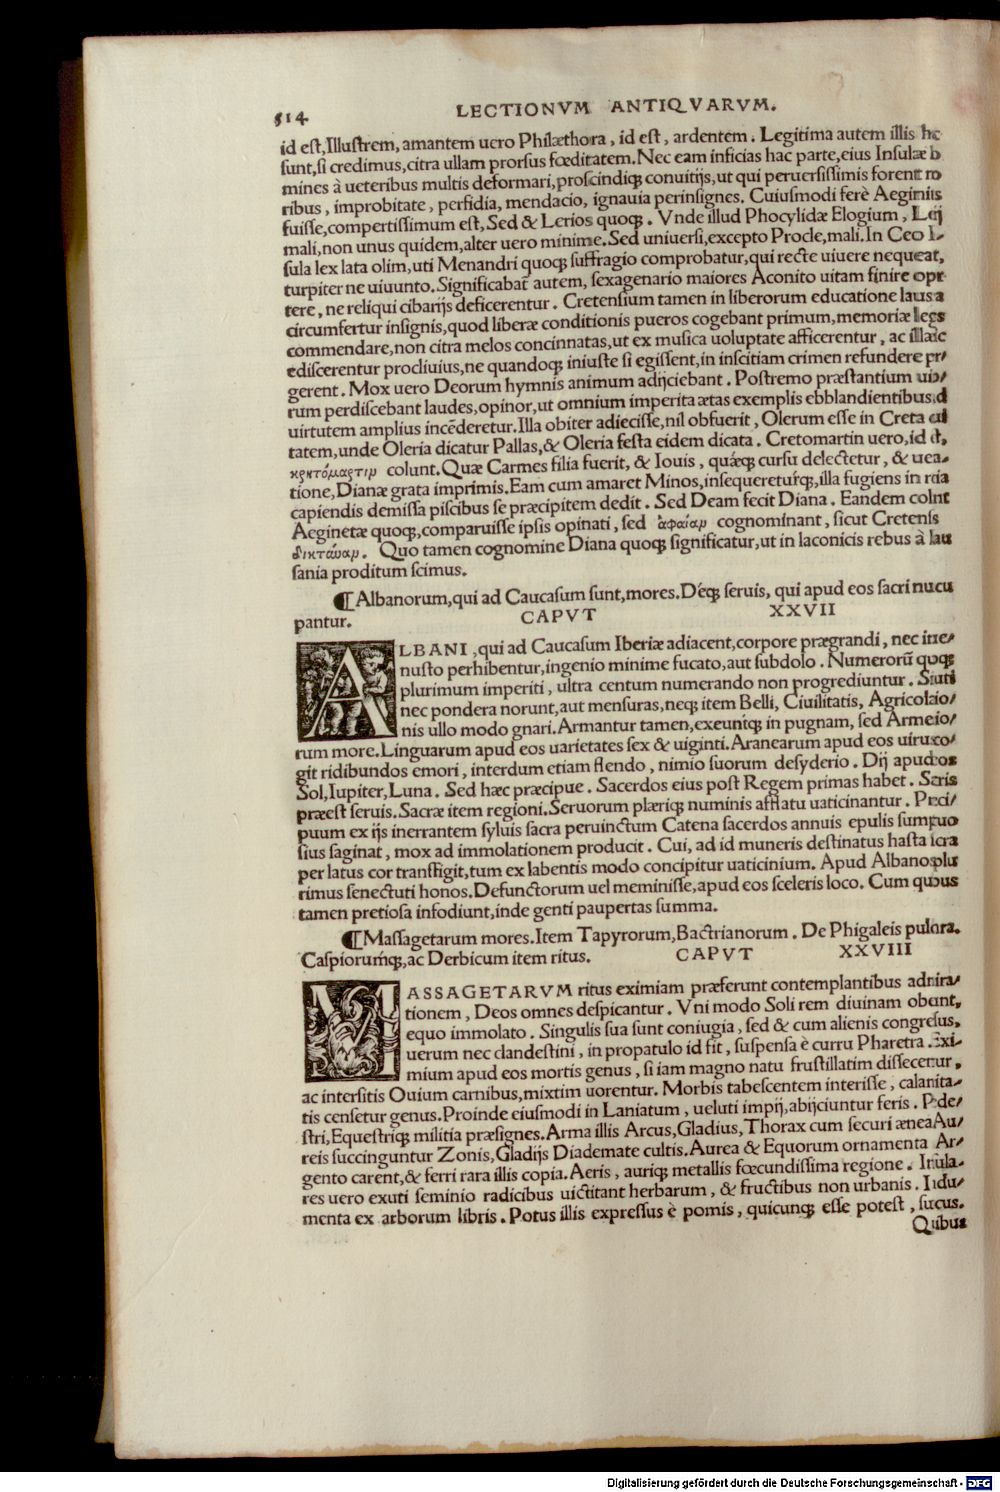 514 LECTIONVM ANTIQVARVM.
id est, Illustrem, amantem uero Philæthora, id est, ardentem. Legitima autem illis
sunt, si credimus, citra ullam prorsus fœditatem. Nec eam inficias hac parte, eius Insulæ
mines à ueteribus multis deformari, proscindiq; conuitijs, ut qui peruersissimis forent
ribus, improbitate, perfidia, mendacio, ignauia perinsignes. Cuiusmodi ferè Aeginitis
fuisse, compertissimum est, Sed & Lerios quoq;. Vnde illud Phocylidæ Elogium, Lerij
mali, non unus quidem, alter uero minime. Sed uniuersi, excepto Procle, mali. In Ceo
sula lex lata olim, uti Menandri quoq; suffragio comprobatur, qui recte uiuere nequeat,
turpiter ne uiuunto. Significabat autem, sexagenario maiores Aconito uitam finire
tere, ne reliqui cibarijs deficerentur. Cretensium tamen in liberorum educatione
circumfertur insignis, quod liberæ conditionis pueros cogebant primum, memoriæ
commendare, non citra melos concinnatas, ut ex musica uoluptate afficerentur, ac
ediscerentur procliuius, ne quandoq; iniuste si egissent, in inscitiam crimen refundere
gerent. Mox uero Deorum hymnis animum adijciebant. Postremo præstantium
rum perdiscebant laudes, opinor, ut omnium imperita ætas exemplis ebblandientibus
uirtutem amplius incēderetur. Illa obiter adiecisse, nil obfuerit, Olerum esse in Creta
tatem, unde Oleria dicatur Pallas, & Oleria festa eidem dicata. Cretomartin uero, id
κρητόμαρτιμ colunt. Quæ Carmes filia fuerit, & Iouis, quæq; cursu delectetur, &
tione, Dianæ grata imprimis. Eam cum amaret Minos, insequereturq;, illa fugiens in
capiendis demissa piscibus se præcipitem dedit. Sed Deam fecit Diana. Eandem
Aeginetæ quoq;, comparuisse ipsis opinati, sed ἀφαίαμ cognominant, sicut
δικτύναμ. Quo tamen cognomine Diana quoq; significatur, ut in laconicis rebus à
sania proditum scimus.
¶Albanorum, qui ad Caucasum sunt, mores. Deq; seruis, qui apud eos sacri
pantur. CAPVT XXVII
ALBANI, qui ad Caucasum Iberiæ adiacent, corpore prægrandi, nec
nusto perhibentur, ingenio minime fucato, aut subdolo. Numerorū quoq;
plurimum imperiti, ultra centum numerando non progrediuntur.
nec pondera norunt, aut mensuras, neq; item Belli, Ciuilitatis,
nis ullo modo gnari. Armantur tamen, exeuntq; in pugnam, sed
rum more. Linguarum apud eos uarietates sex & uiginti. Aranearum apud eos
git ridibundos emori, interdum etiam flendo, nimio suorum desyderio. Dij apud
Sol, Iupiter, Luna. Sed hæc præcipue. Sacerdos eius post Regem primas habet.
præest seruis. Sacræ item regioni. Seruorum plæriq; numinis afflatu uaticinantur.
puum ex ijs inerrantem syluis sacra peruinctum Catena sacerdos annuis epulis
sius saginat, mox ad immolationem producit. Cui, ad id muneris destinatus hasta
per latus cor transfigit, tum ex labentis modo concipitur uaticinium. Apud Albanos
rimus senectuti honos. Defunctorum uel meminisse, apud eos sceleris loco. Cum
tamen pretiosa infodiunt, inde genti paupertas summa.
¶Massagetarum mores. Item Tapyrorum, Bactrianorum. De Phigaleis
Caspiorumq;, ac Derbicum item ritus. CAPVT XXVIII
MASSAGETARVM ritus eximiam præferunt contemplantibus
tionem, Deos omnes despicantur. Vni modo Soli rem diuinam
equo immolato. Singulis sua sunt coniugia, sed & cum alienis
uerum nec clandestini, in propatulo id fit, suspensa è curru Pharetra.
mium apud eos mortis genus, si iam magno natu frustillatim
ac intersitis Ouium carnibus, mixtim uorentur. Morbis tabescentem interisse,
tis censetur genus. Proinde eiusmodi in Laniatum, ueluti impij, abijciuntur feris.
stri, Equestriq; militia præsignes. Arma illis Arcus, Gladius, Thorax cum securi ænea
reis succinguntur Zonis, Gladijs Diademate cultis. Aurea & Equorum ornamenta Ar-
gento carent, & ferri rara illis copia. Aeris, auriq; metallis fœcundissima regione.
res uero exuti seminio radicibus uictitant herbarum, & fructibus non urbanis.
menta ex arborum libris. Potus illis expressus è pomis, quicunq; esse potest,
Quibus
Digitalisierung gefördert durch die Deutsche Forschungsgemeinschaft - DFG